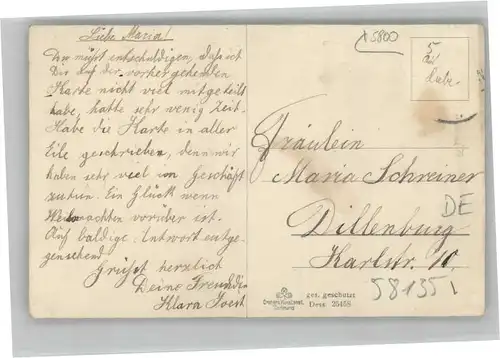 Liebe Maria!
Du mußt entschuldigen, daß ich
Dir auf der vorhergehenden
Karte nicht viel mitgeteilt
habe, hatte sehr wenig Zeit.
Habe die Karte in aller
Eile geschrieben, denn wir
haben sehr viel im Geschäft
zutun. Ein Glück wenn
Weihnachten vorüber ist.
Auf baldige Antwort entge-
gensehend
Grüßt herzlich
Deine Freundin
Klara Joest
15800
5
Fräulein
Maria Schreiner
Dillenburg
Karlstr. 10.
DE
ges. geschützt
Dess. 25458
58135